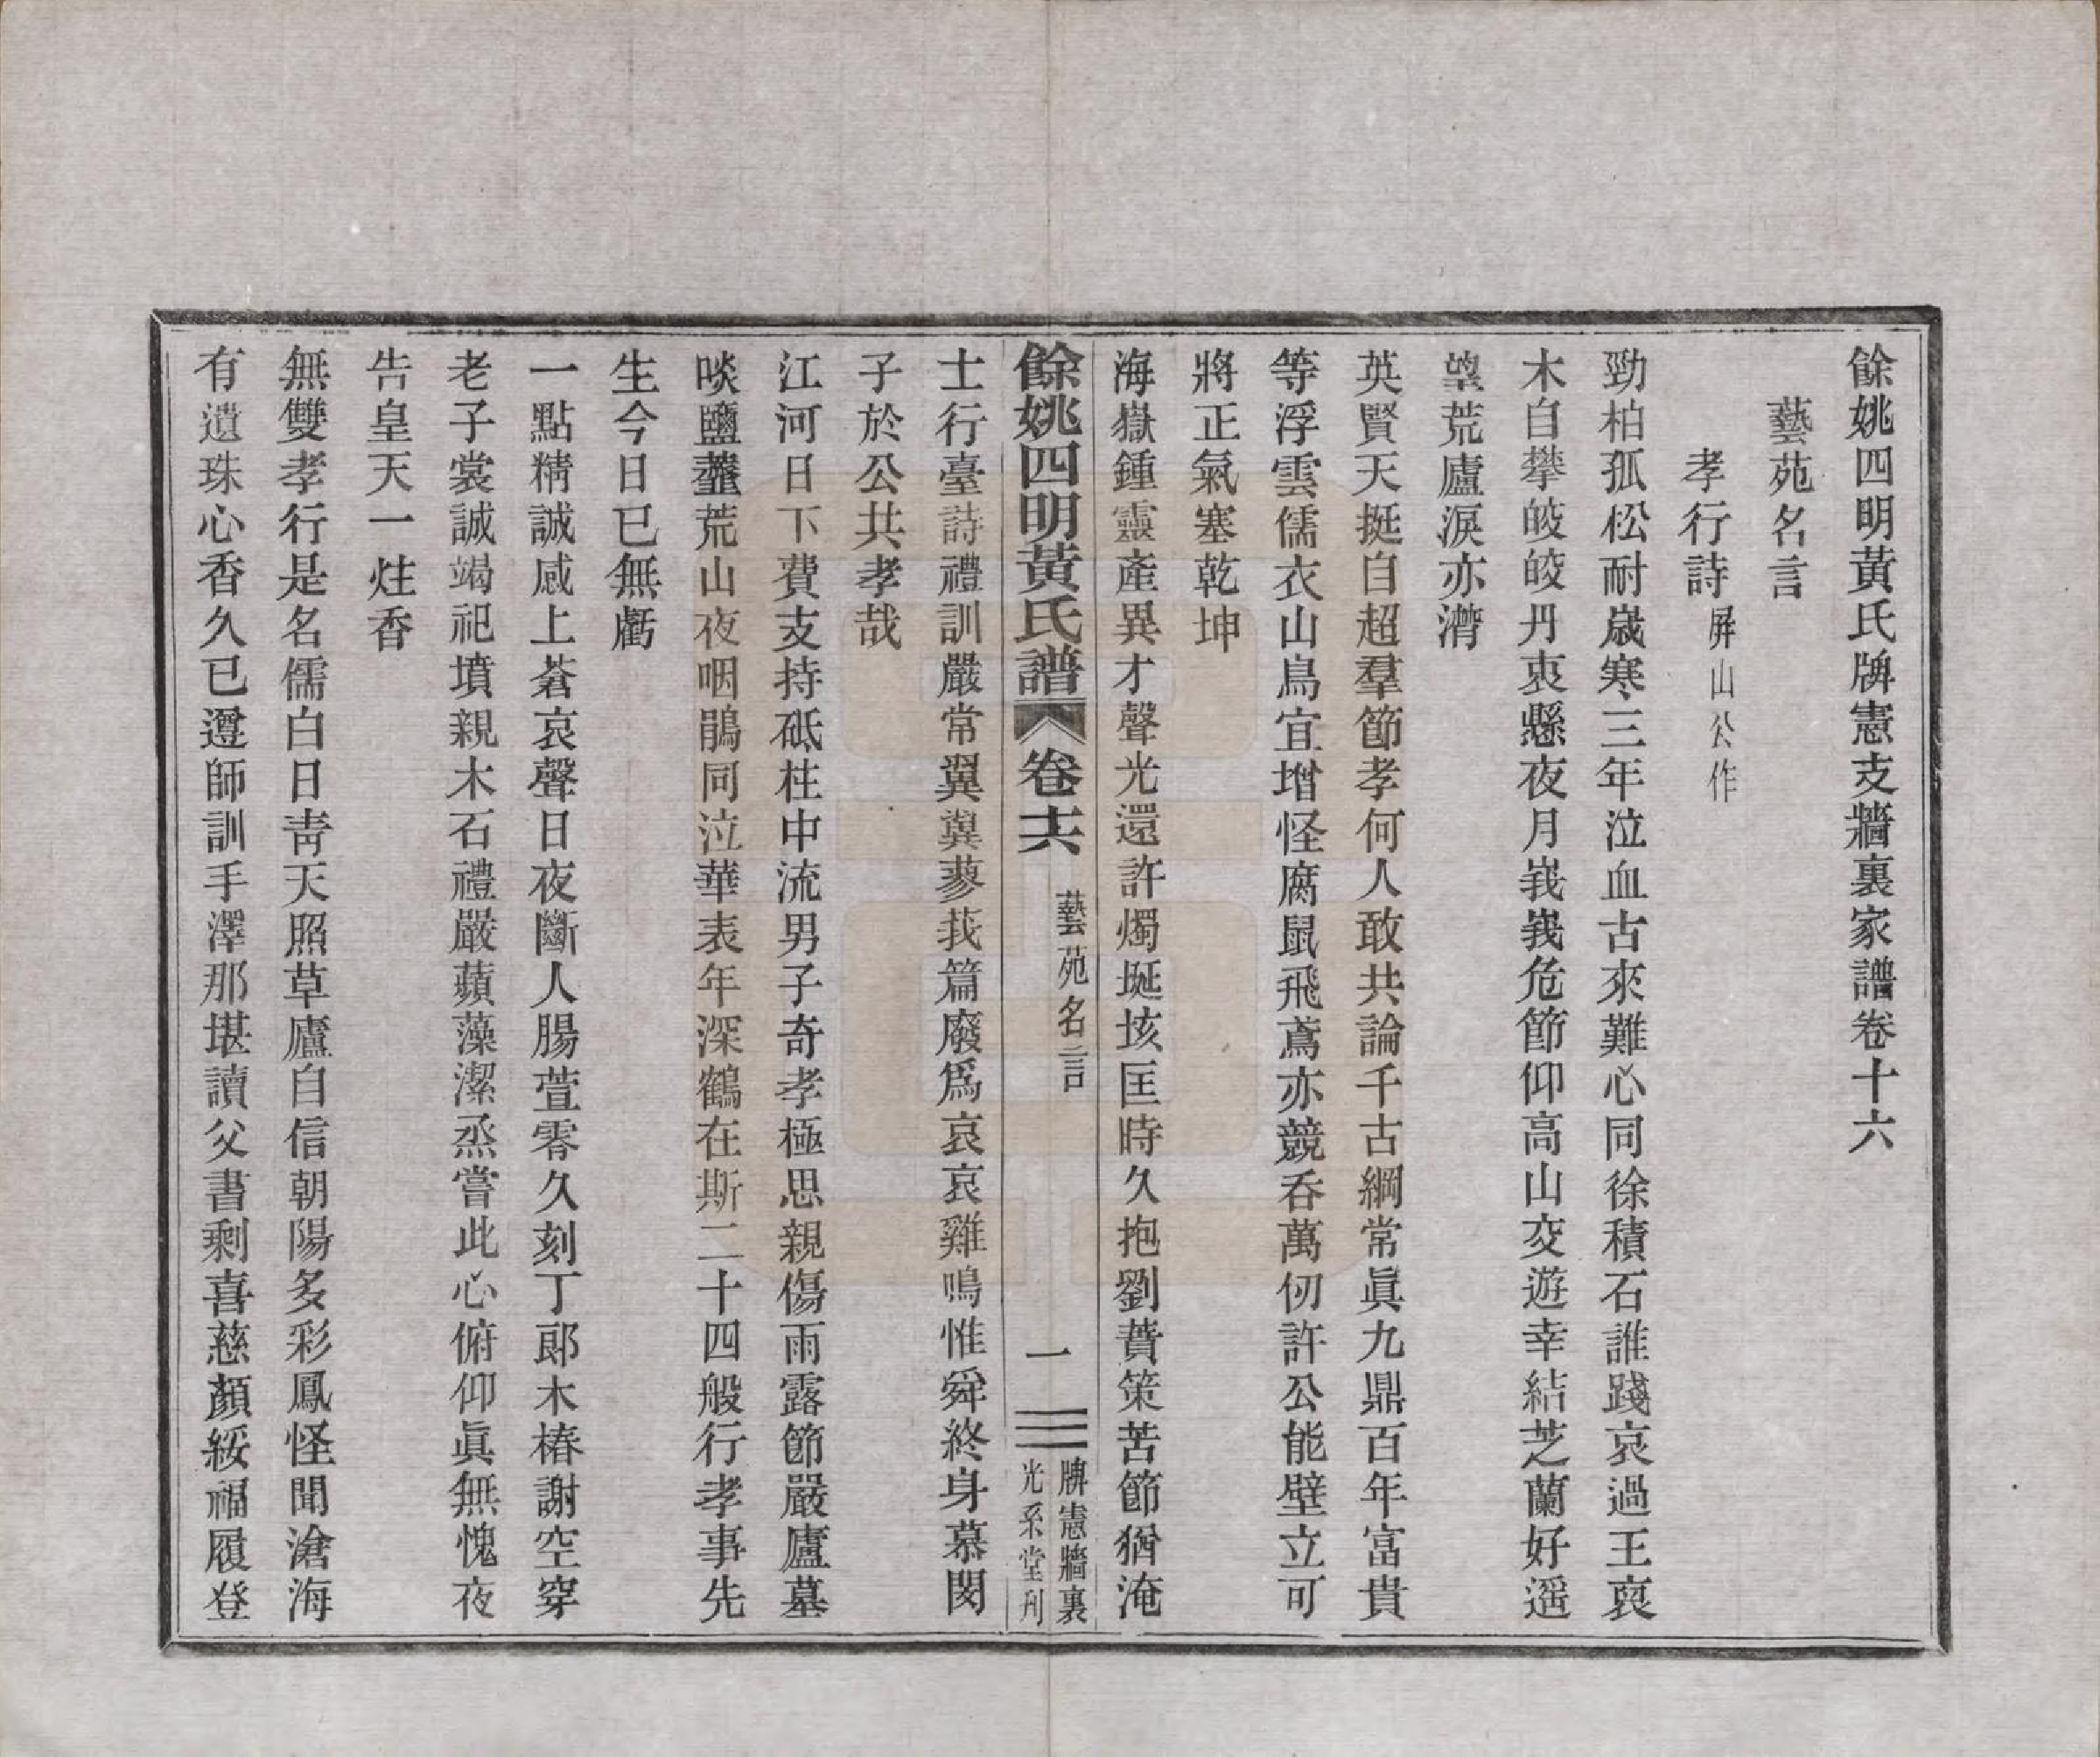 餘姚四明黃氏牌憲支牆裏家譜卷十六
藝苑名言
孝行詩屏山公作
勁柏孤松耐歲寒三年泣血古來難心同徐積石誰踐哀過王裒
木自攀皎皎丹衷懸夜月峩峩危節仰高山交遊幸結芝蘭好遥
望荒廬淚亦潸
英賢天挺自超羣節孝何人敢共論千古綱常眞九鼎百年富貴
等浮雲儒衣山鳥宜增怪腐鼠飛鳶亦競吞萬仞許公能壁立可
將正氣塞乾坤
海嶽鍾靈產異才聲光還許燭埏垓匡時久抱劉蕡策苦節猶淹
餘姚四明黃氏譜 卷十六 藝苑名言 一 牌憲牆裏
光系堂刋
士行臺詩禮訓嚴常翼翼蓼莪篇廢爲哀哀雞鳴惟舜終身慕閔
子於公共孝哉
江河日下費支持砥柱中流男子奇孝極思親傷雨露節嚴廬墓
啖鹽虀荒山夜咽鵑同泣華表年深鶴在斯二十四般行孝事先
生今日已無虧
一點精誠感上蒼哀聲日夜斷人腸萱零久刻丁郎木椿謝空穿
老子裳誠竭祀墳親木石禮嚴蘋藻潔烝嘗此心俯仰眞無愧夜
告皇天一炷香
無雙孝行是名儒白日靑天照草廬自信朝陽多彩鳳怪聞滄海
有遺珠心香久已遵師訓手澤那堪讀父書剩喜慈顏綏福履登